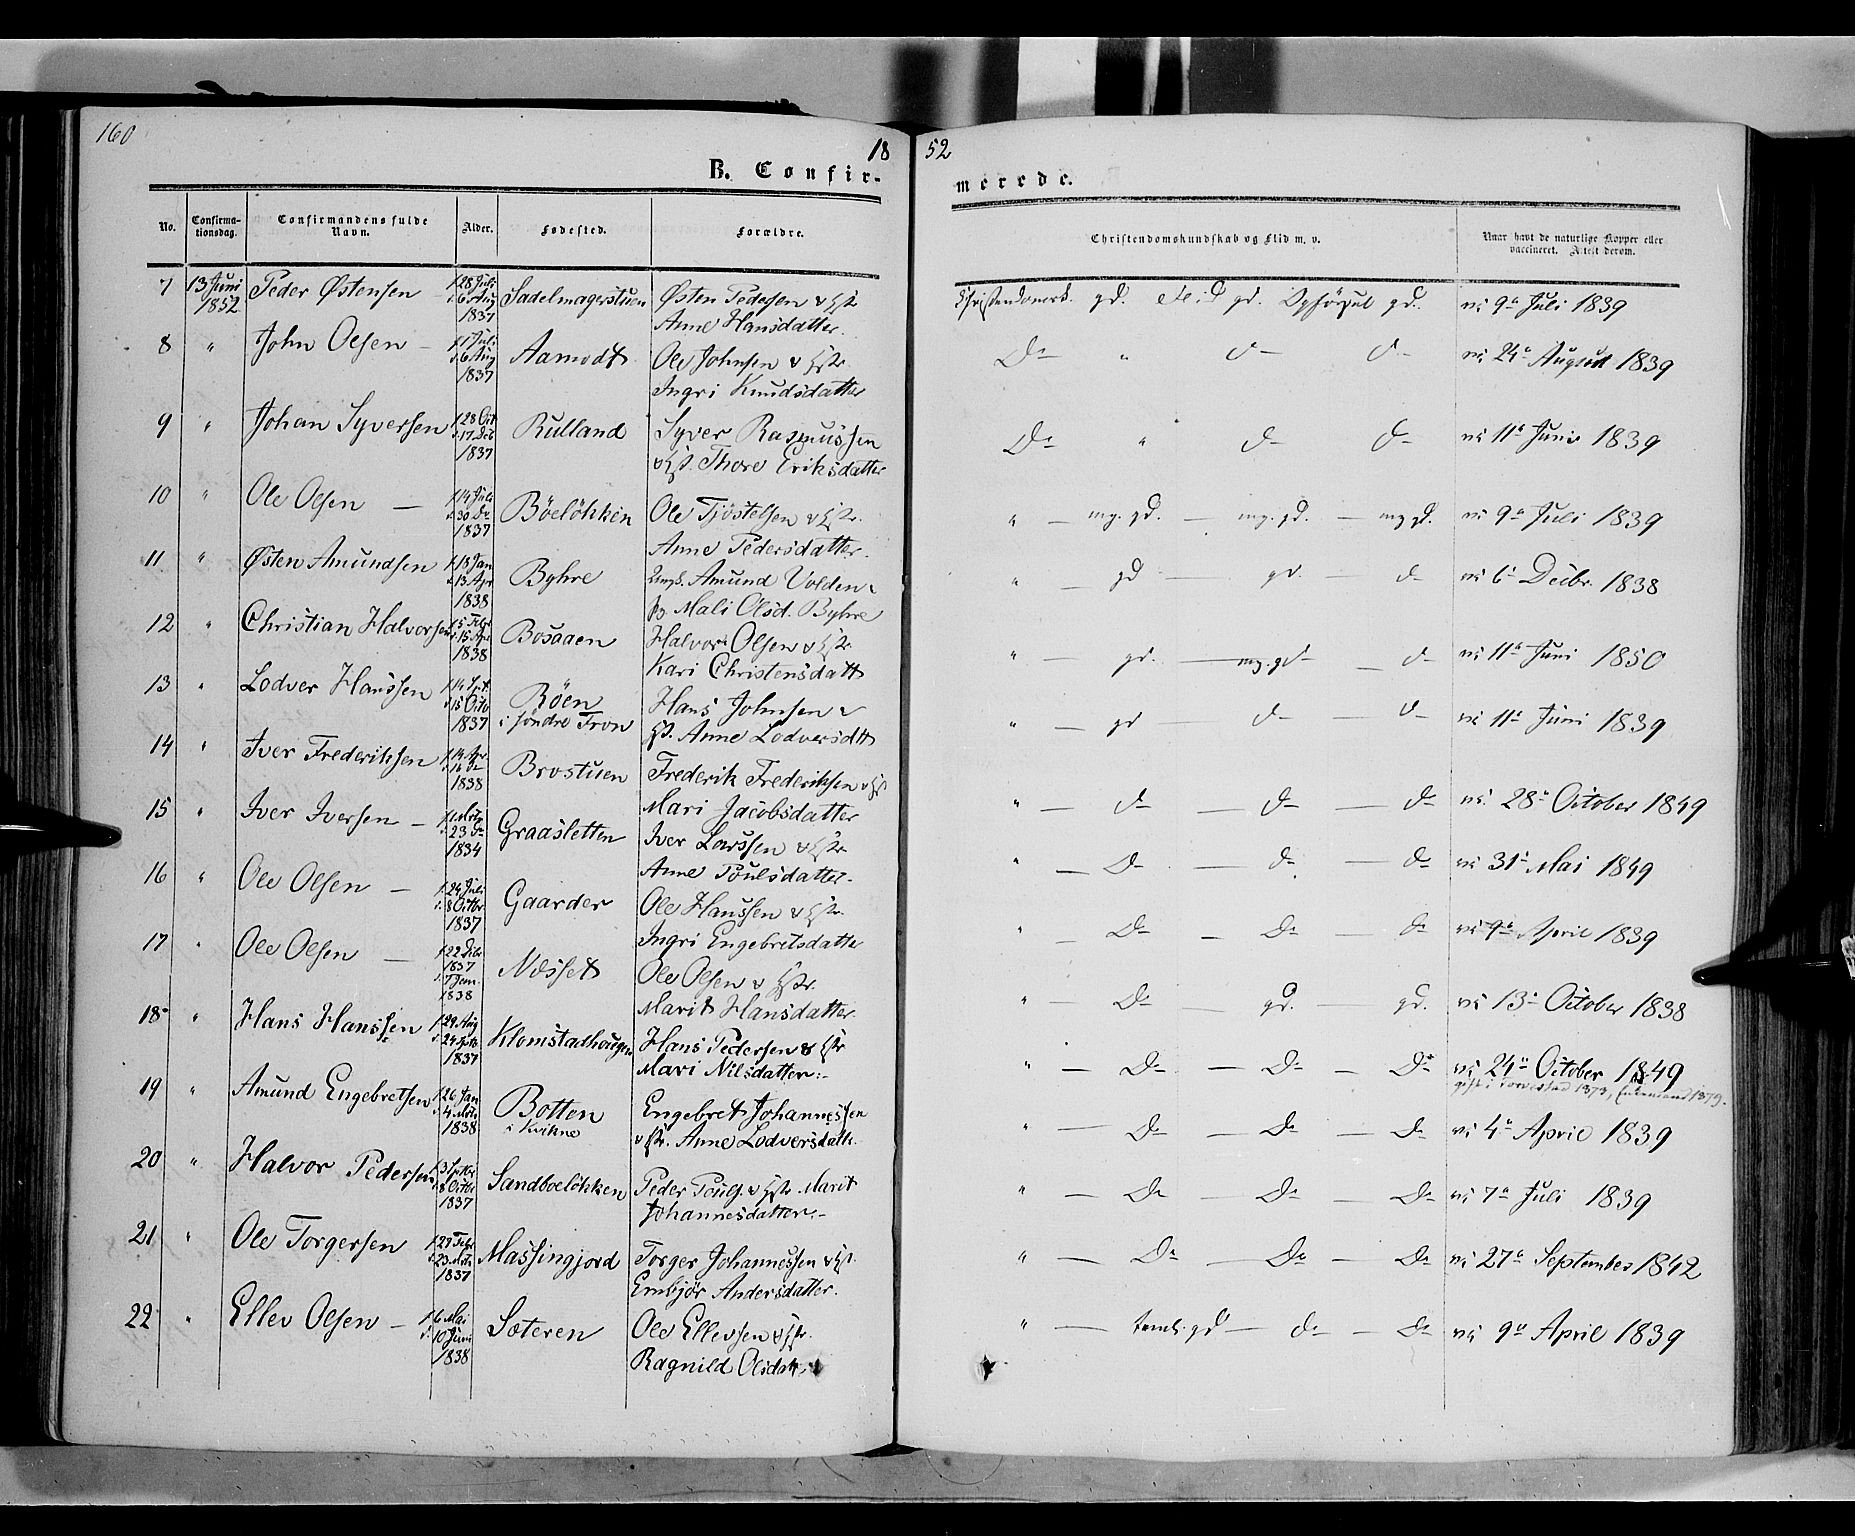 160
18
52
B. Confir-
merede.
No.
Confirma-
tionsdag.
Confirmandens fulde
Navn.
Alder.
Fødested.
Forældre.
Christendomskundskab og Flid m. v.
Naar havt de naturlige Kopper eller
vaccineret. Attest derom.
7 13 Juni 1852 Peder Østensen f 28 Juli d. 6 Aug 1837 Sadelmagerstuen Østen Pedersen & Hstr
Anne Hansdatter.
gd. Flid gd. Opførsel gd. vc 9de Juli 1839
8 " John Olsen – f 1 Juli d. 6 Aug 1837 Aamodt Ole Johnsen & Hstr.
Ingri Knudsdatter
Do " do do vc 24de August 1839
9 " Johan Syversen f 28 Oct d. 17 Deb 1837 Rulland Syver Rasmussen
& Hst. Thore Eriksdatter
Do " do do vc 11te Juni 1839
10 " Ole Olsen — f 14 Juli d. 30 Do 1837 Böelökken Ole Tjöstelsen & Hstr.
Anne Pedersdatter.
" — mg. gd. — mg. gd. — mg gd. vc 9de Juli 1839
11 " Østen Amundsen f 13 Jan d. 13 Apr 1838 Byhre Amund Volden &
Mali Olsd. Byhre
" — gd — gd. — do vc 6te Decbr. 1838
12 " Christian Halvorsen f 5 Febr d. 15 Apr 1838 Bosaaen Halvor Olsen & Hstr.
Kari Christensdatt
" — gd. — mg. gd — do vc 11te Juni 1850
13 " Lodver Hanssen f 14 Spt. d. 15 Octb 1837 Röen
i söndre Fron Hans Johnsen &
Hst. Anne Lodversdtt
" — gd — do — do vc 11te Juni 1839
14 " Iver Frederiksen f 14 Apr. d. 16 do 1838 Brostuen Frederik Frederiksen & Hst
Mari Jacobsdatter
" — do — do — do vc 28de October 1849
15 " Iver Iversen – f 1 Mrts d. 23 do 1834 Graasletten Iver Larssen & Hstr.
Anne Poulsdatter.
" — Do — do — do vc 31te Mai 1849
16 " Ole Olsen — f 24 Juli d. 8 Octbr. 1837 Gaarder Ole Hanssen & Hstr.
Ingri Engebretsdatte
" — Do — Do — do vc 9de April 1839
17 " Ole Olsen — f 22 Debr 1837 d. 7 Jan. 1838 Næsset Ole Olsen & Hstr.
Marit Hansdatter
" — Do — gd. — gd. vc 13de October 1838
18 " Hans Hanssen f 29 Aug d. 24 Sptb 1837 Klomstadhougen Hans Pedersen & Hstr
Mari Nilsdatter.-
" — Do — Do — Do vc 24de October 1849
1873, 1879.
19 " Amund Engebretsen f 26 Jan d. 4 Mrts 1838 Botten
i Kvikne Engebret Johannessen
& Hstr. Anne Lodversdattr.
" — Do — Do — Do vc 4de April 1839
20 " Halvor Pedersen f 3 Sptbr d. 8 Octbr 1837 Sandboelökken Peder Pouls. & Hstr. Marit
Johannesdatter.-
" — Do — Do — Do vc 7de Juli 1839
21 " Ole Torgersen f 27 Febr d. 23 Mrts 1837 Massingjord Torger Johannessen & Hst.
Embjör Andersdatter.
" — Do — Do — Do vc 27de September 1842
22 " Ellev Olsen – f 6 Mai d. 10 Juni 1838 Sæteren Ole Ellevsen & Hstr.
Ragnild Olsdatt.
" — teml. gd — do — Do vc 9de April 1839